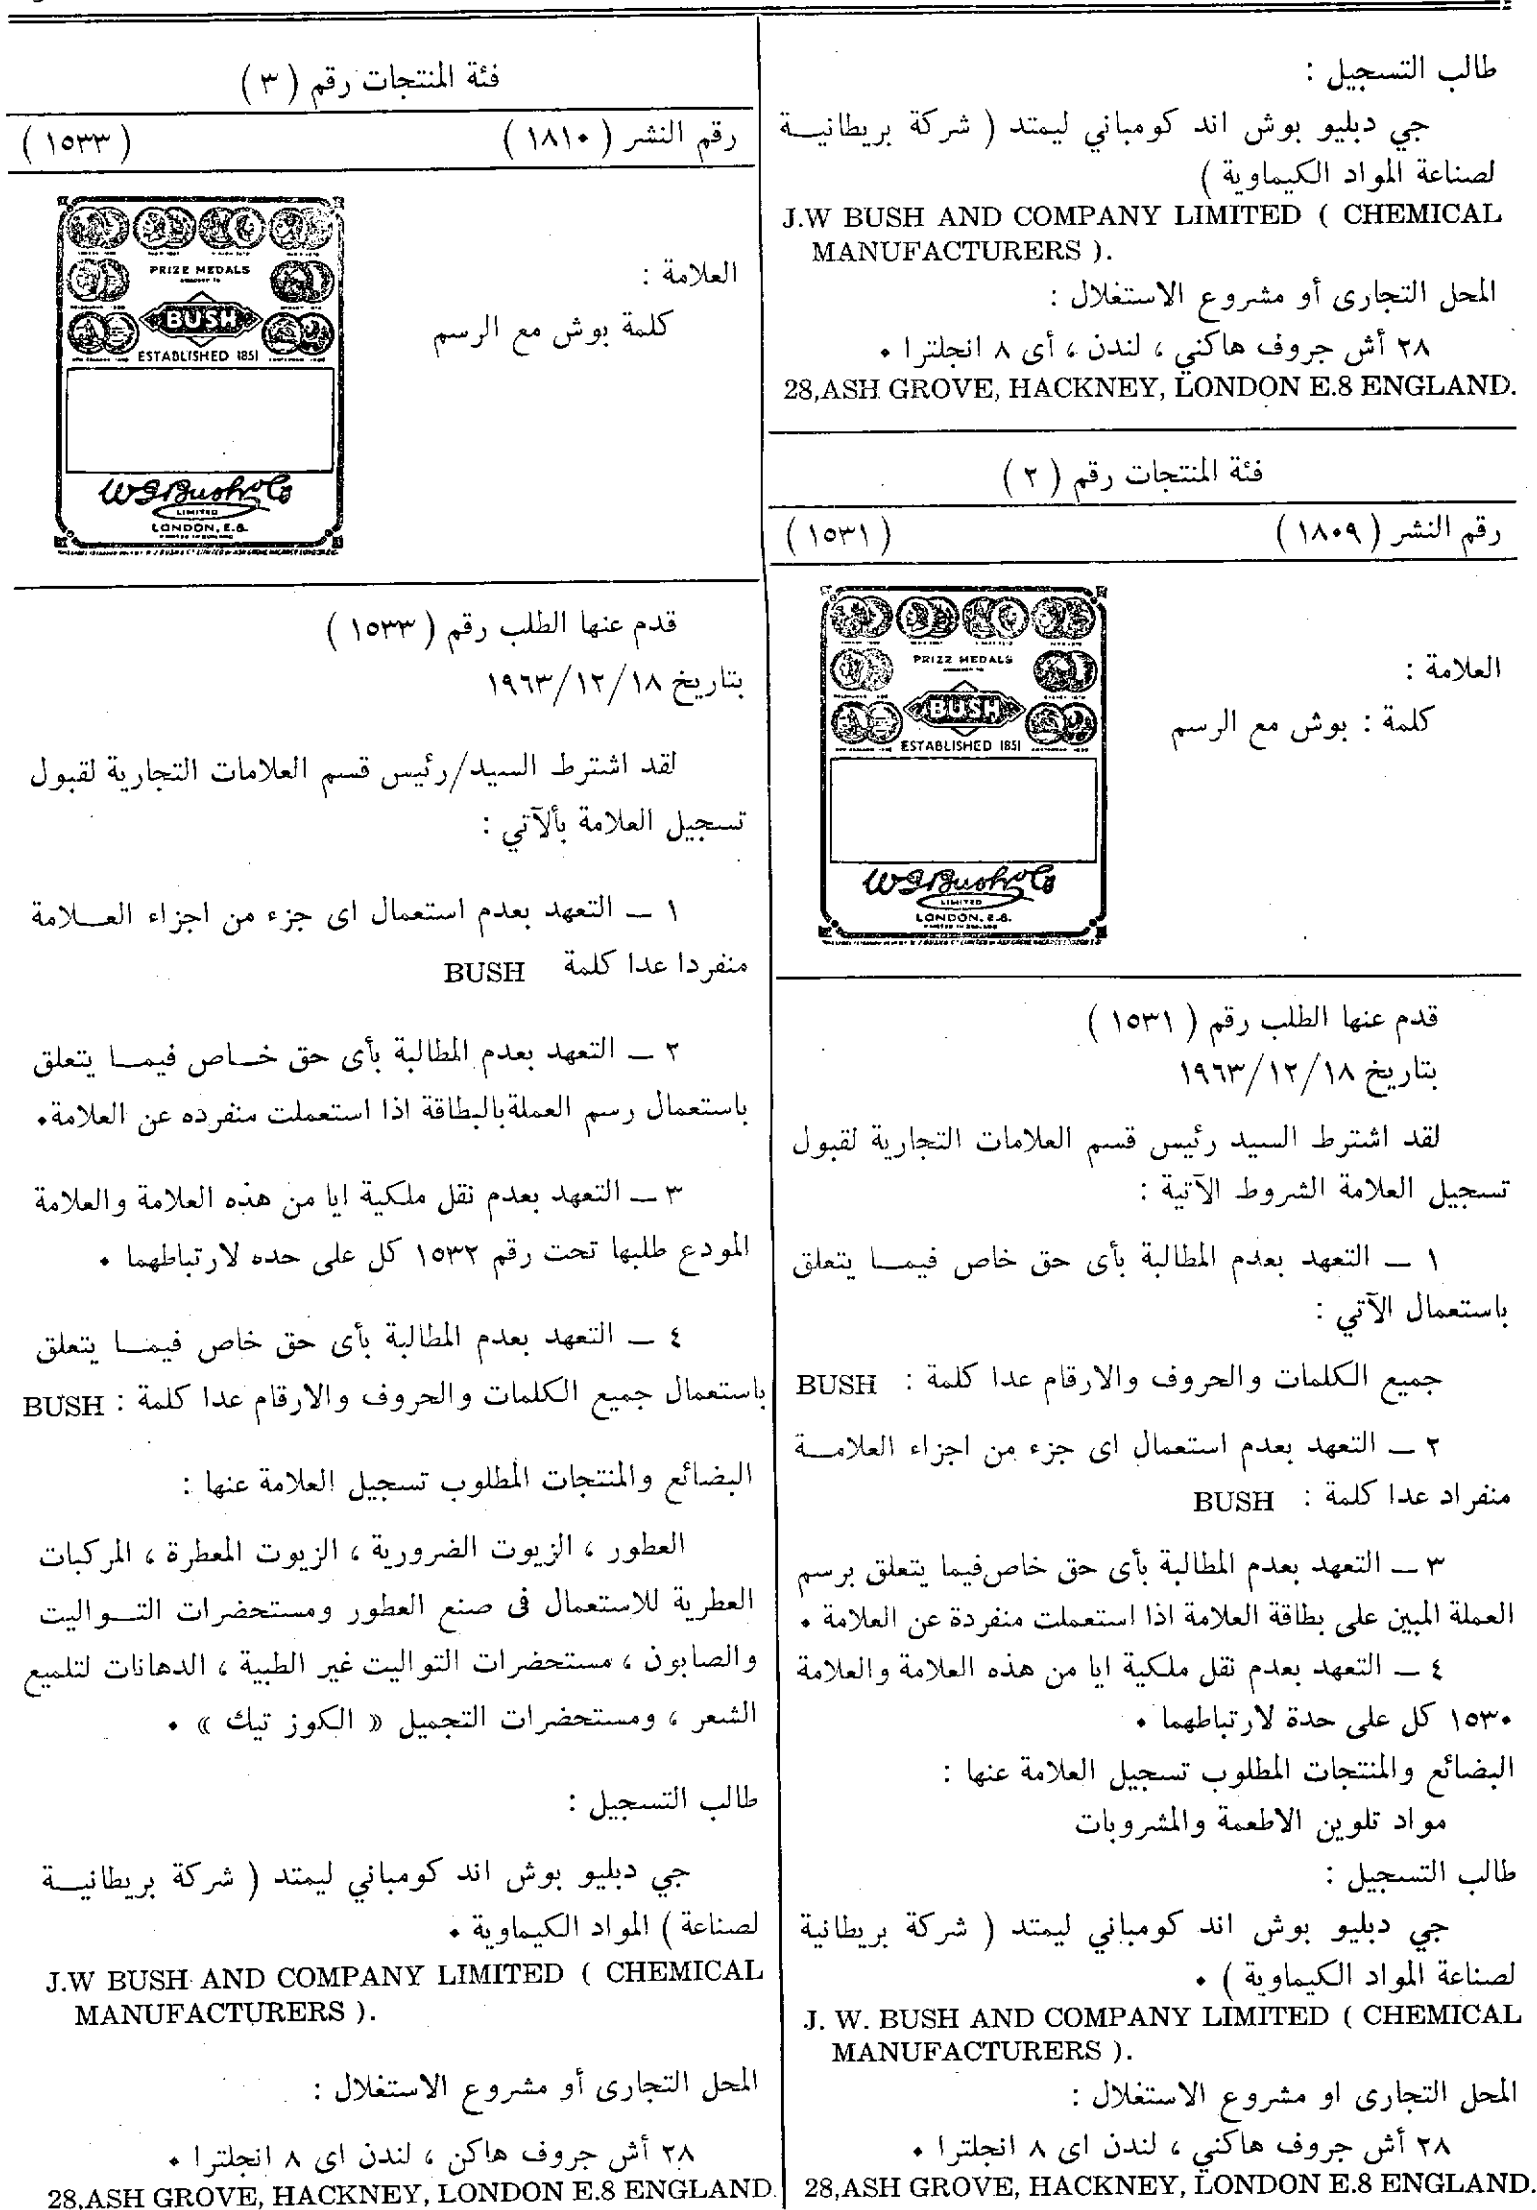 طالب التسجيل :
جي دبليو بوش اند كومباني ليمتد ( شركة بريطانيــة
لصناعة المواد الكيماوية )
J.W BUSH AND COMPANY LIMITED ( CHEMICAL
MANUFACTURERS ).
المحل التجارى أو مشروع الاستغلال :
٢٨ أش جروف هاكني ، لندن ، أى ٨ انجلترا .
28,ASH GROVE, HACKNEY, LONDON E.8 ENGLAND.
فئة المنتجات رقم ( ٢ )
رقم النشر ( ١٨٠٩ ) ( ١٥٣١ )
PRIZE MEDALS
BUSH
ESTABLISHED 1851
W J Bush & Co
LIMITED
LONDON, E.8.
العلامة :
كلمة : بوش مع الرسم
قدم عنها الطلب رقم ( ١٥٣١ )
بتاريخ ١٩٦٣/١٢/١٨
لقد اشترط السيد رئيس قسم العلامات التجارية لقبول
تسجيل العلامة الشروط الآتية :
١ ــ التعهد بعدم المطالبة بأى حق خاص فيمــا يتعلق
باستعمال الآتي :
جميع الكلمات والحروف والارقام عدا كلمة : BUSH
٢ ــ التعهد بعدم استعمال اى جزء من اجزاء العلامــة
منفراد عدا كلمة : BUSH
٣ ــ التعهد بعدم المطالبة بأى حق خاص فيما يتعلق برسم
العملة المبين على بطاقة العلامة اذا استعملت منفردة عن العلامة .
٤ ــ التعهد بعدم نقل ملكية ايا من هذه العلامة والعلامة
١٥٣٠ كل على حدة لارتباطهما .
البضائع والمنتجات المطلوب تسجيل العلامة عنها :
مواد تلوين الاطعمة والمشروبات
طالب التسجيل :
جي دبليو بوش اند كومباني ليمتد ( شركة بريطانية
لصناعة المواد الكيماوية ) .
J. W. BUSH AND COMPANY LIMITED ( CHEMICAL
MANUFACTURERS ).
المحل التجارى او مشروع الاستغلال :
٢٨ أش جروف هاكني ، لندن اى ٨ انجلترا .
28,ASH GROVE, HACKNEY, LONDON E.8 ENGLAND.
فئة المنتجات رقم ( ٣ )
رقم النشر ( ١٨١٠ ) ( ١٥٣٣ )
PRIZE MEDALS
BUSH
ESTABLISHED 1851
W J Bush & Co
LIMITED
LONDON, E.8.
العلامة :
كلمة بوش مع الرسم
قدم عنها الطلب رقم ( ١٥٣٣ )
بتاريخ ١٩٦٣/١٢/١٨
لقد اشترط السيد/رئيس قسم العلامات التجارية لقبول
تسجيل العلامة بألآتي :
١ ــ التعهد بعدم استعمال اى جزء من اجزاء العــلامة
منفردا عدا كلمة BUSH
٢ ــ التعهد بعدم المطالبة بأى حق خــاص فيمــا يتعلق
باستعمال رسم العملة بالبطاقة اذا استعملت منفرده عن العلامة.
٣ ــ التعهد بعدم نقل ملكية ايا من هذه العلامة والعلامة
المودع طلبها تحت رقم ١٥٣٢ كل على حده لارتباطهما .
٤ ــ التعهد بعدم المطالبة بأى حق خاص فيمــا يتعلق
باستعمال جميع الكلمات والحروف والارقام عدا كلمة : BUSH
البضائع والمنتجات المطلوب تسجيل العلامة عنها :
العطور ، الزيوت الضرورية ، الزيوت المعطرة ، المركبات
العطرية للاستعمال فى صنع العطور ومستحضرات التــواليت
والصابون ، مستحضرات التواليت غير الطبية ، الدهانات لتلميع
الشعر ، ومستحضرات التجميل « الكوز تيك » .
طالب التسجيل :
جي دبليو بوش اند كومباني ليمتد ( شركة بريطانيــة
لصناعة ) المواد الكيماوية .
J.W BUSH AND COMPANY LIMITED ( CHEMICAL
MANUFACTURERS ).
المحل التجارى أو مشروع الاستغلال :
٢٨ أش جروف هاكن ، لندن اى ٨ انجلترا .
28,ASH GROVE, HACKNEY, LONDON E.8 ENGLAND.